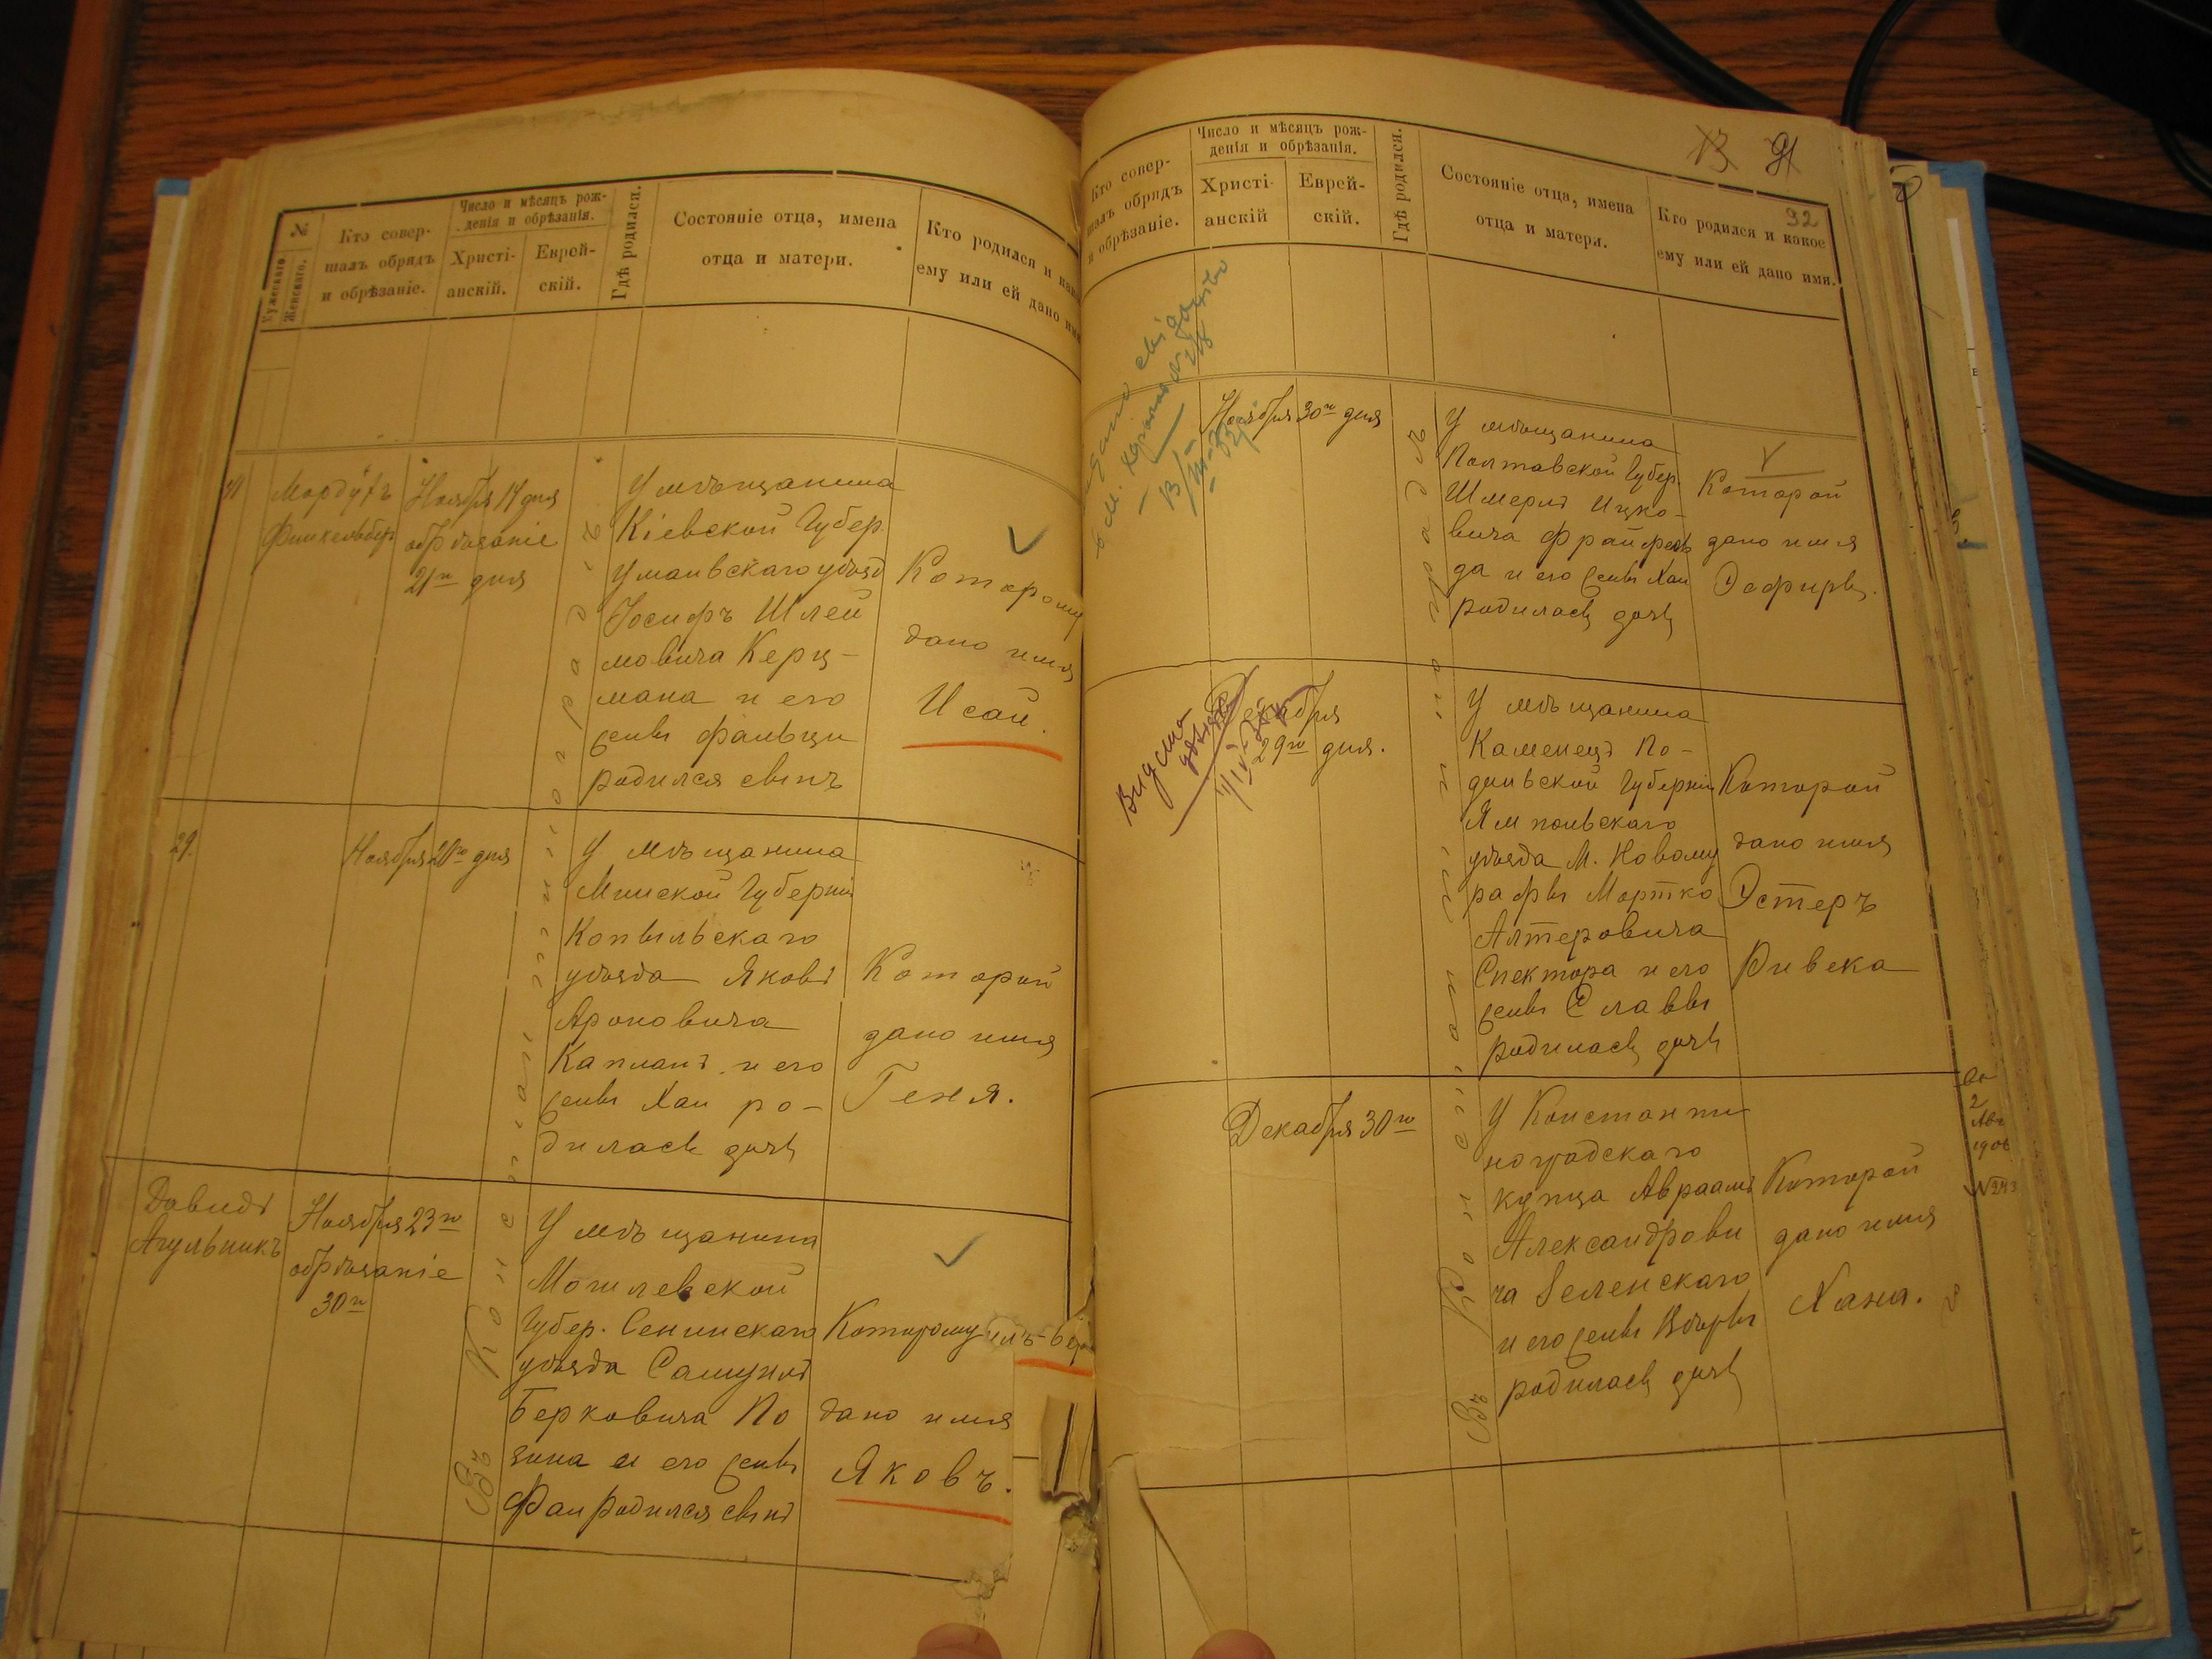 №
Мужескаго
Женскаго.
Кто совер-
шалъ обрядъ
и обрѣзаніе.
Число и мѣсяцъ рож-
денія и обрѣзанія.
Христі-
анскій.
Еврей-
скій.
Гдѣ родился.
Состояніе отца, имена
отца и матери.
Кто родился и
ему или ей дано
Ноября 14 дня
обрѣзаніе
21го дня
У мѣщанина
Кіевской Губер.
Уманьскаго уѣзд
Іосифъ Шлей
мовича Керц-
мана и его
жены
родился сынъ
Которому
дано имя
Исай.
29.
Ноября дня
У мѣщанина
Минской Губерніи
Копыльскаго
уѣзда Яковъ
Ароновича
Капланъ и его
жены Хаи ро-
дилась дочь
Которой
дано имя
Геня.
Давидъ
Агульникъ
Ноября 23го
обрѣзаніе
30го
У мѣщанина
Могилевской
Губер. Сеннинскаго
уѣзда Самуилъ
Берковича По
зина и его жены
Фаи родился сынъ
Которому
дано имя
Яковъ.
Въ Константиноградѣ
Кто совер-
шалъ обрядъ
и обрѣзаніе.
Число и мѣсяцъ рож-
денія и обрѣзанія.
Христі-
анскій
Еврей-
скій.
Гдѣ родился.
Состояніе отца, имена
отца и матери.
Кто родился и какое
ему или ей дано имя.
92
Ноября 30го дня
У мѣщанина
Полтавской Губер.
Шмерлъ Ицко-
вича
да и его жены Хаи
родилась дочь
Которой
дано имя
Эсфирь.
Декабря
29го дня.
У мѣщанина
Каменецъ По-
дольской Губерніи
Ямпольскаго
уѣзда М. Новому
рафы Мортко
Алтеровича
Спектора и его
жены Славы
родилась дочь
Которой
дано имя
Эстеръ
Ривека
Декабря 30го
У Константи
ноградскаго
купца Авраамъ
Александрови
ча Зеленскаго
и его жены Вѣры
родилась дочь
Которой
дано имя
Хана.
Въ Константиноградѣ